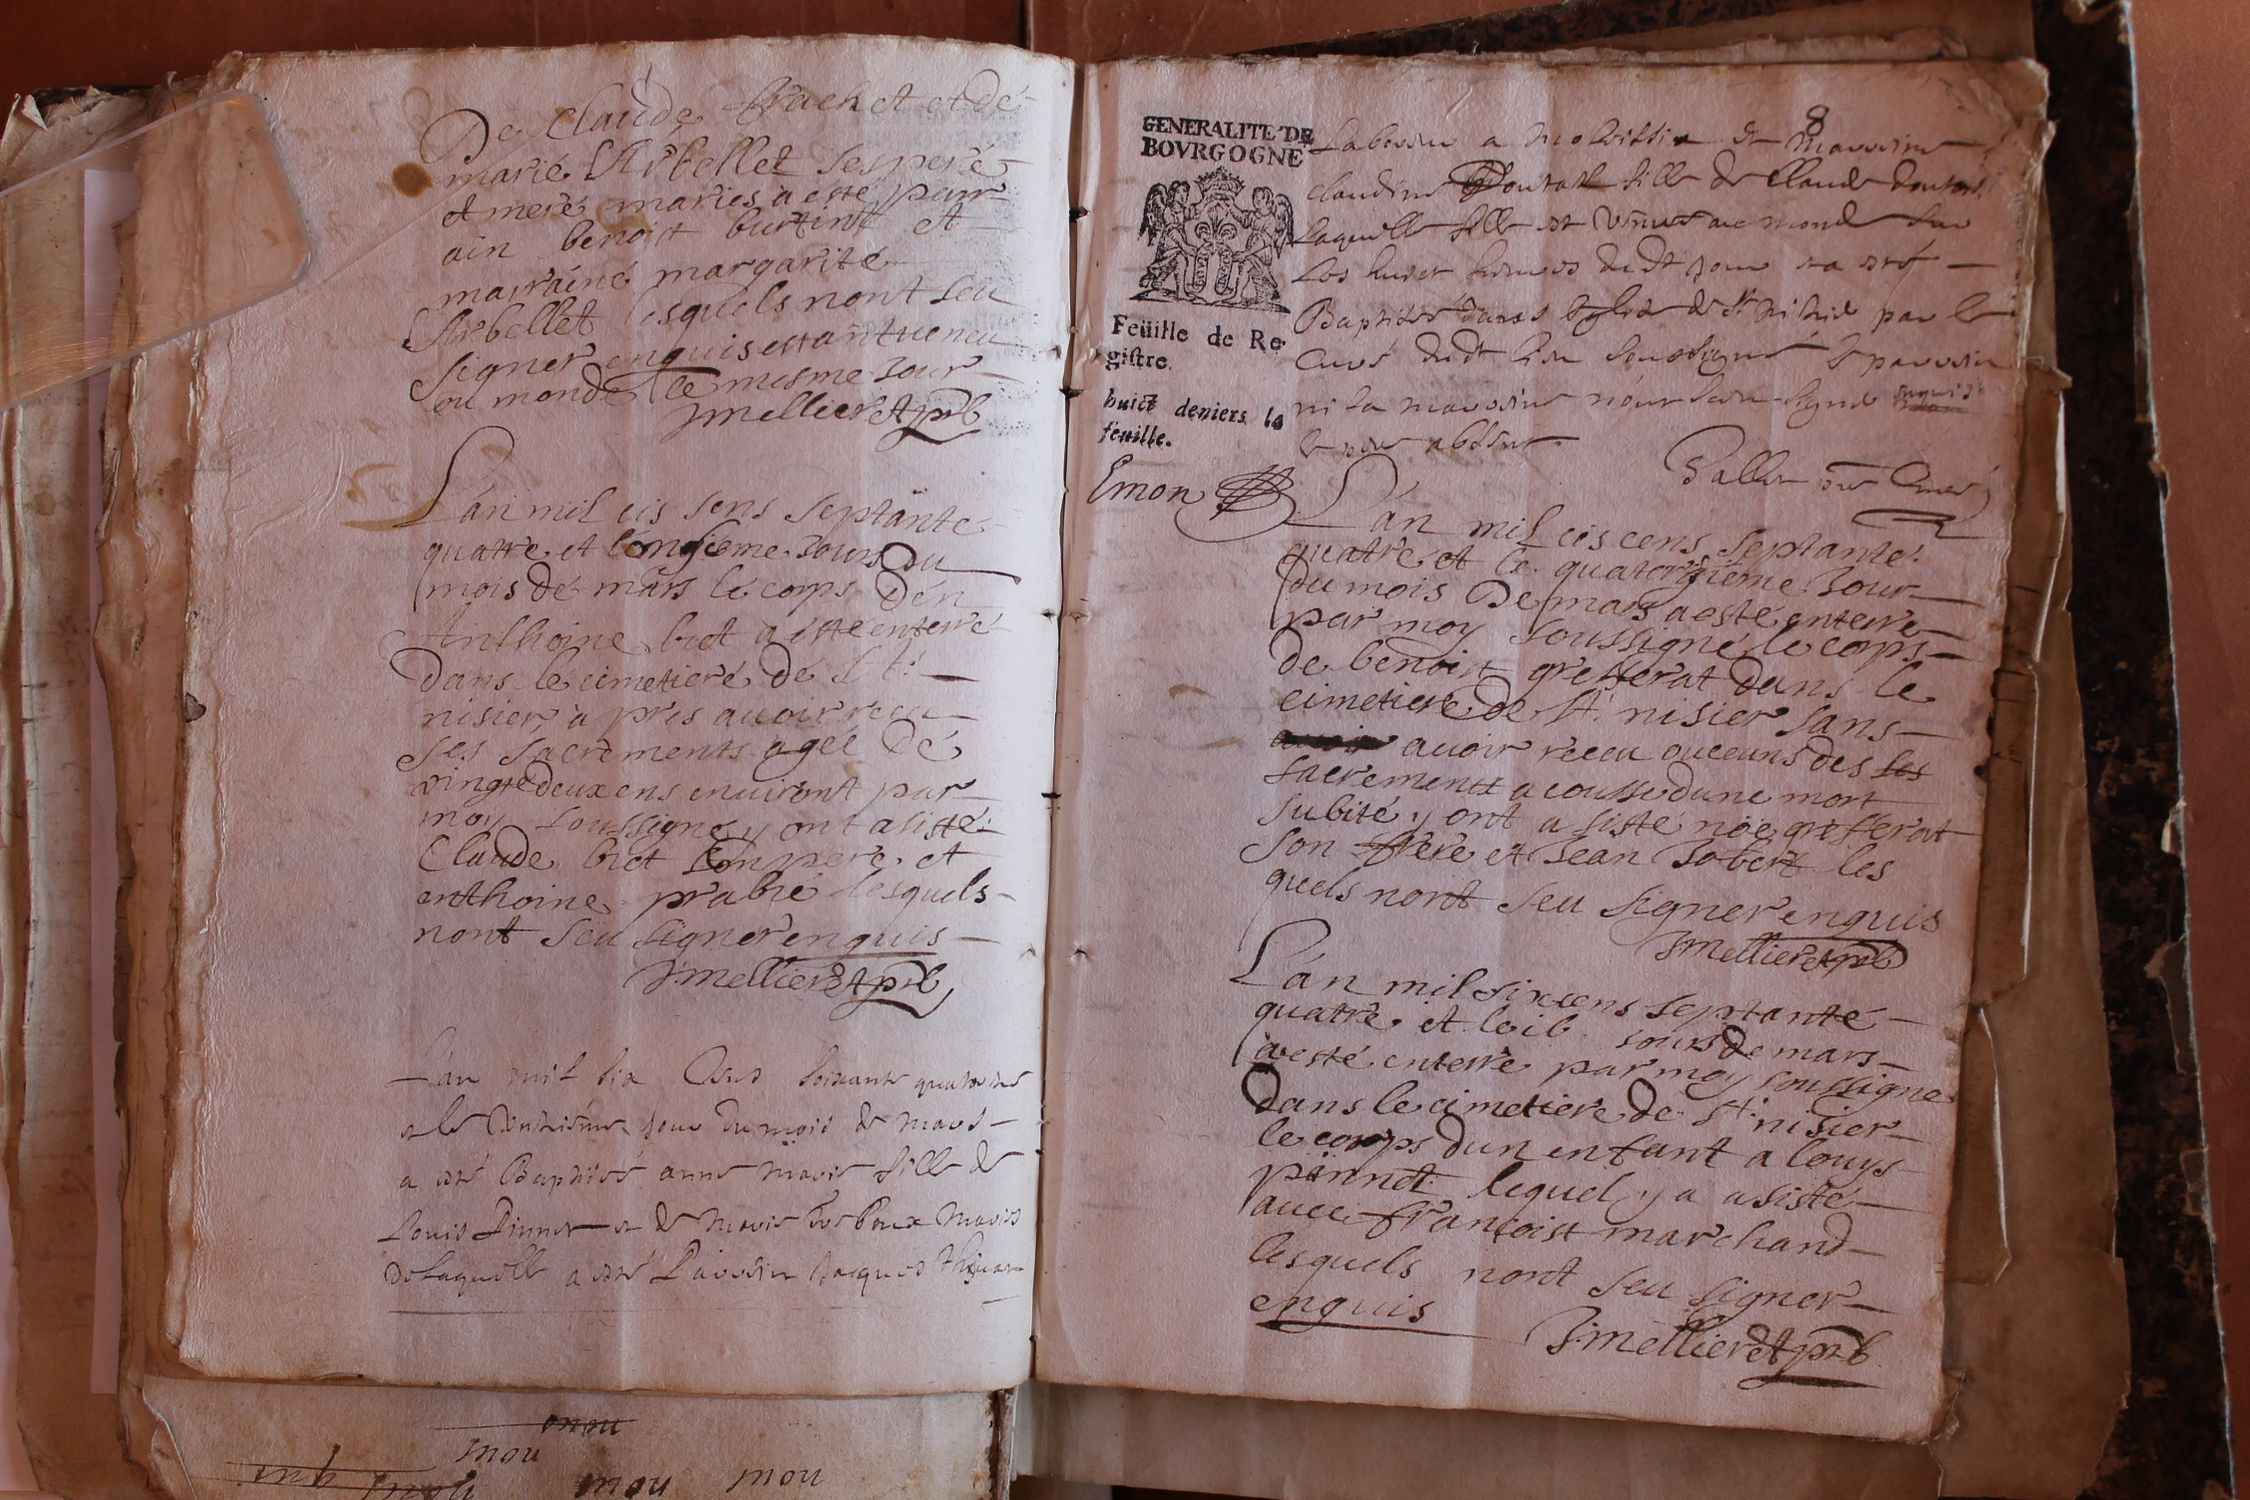 De Claude Brachet et dé
marié Arbellet ses peré
et meré mariés a esté parr
ain benoist burtint et
marrainé margarité
Arbellet lesquels nont seu
signer enquis estant venu
ou monde le mesme Jour
J mellieret prb
Lan mil cis sens septante
quatre et lonsieme Jours du
mois dé mars lé corps dén
Anthoine biet a esté enterré
dans le cimetieré dé St
nisier a pres auoir reçu
ses sacréments agée dé
vingte deux ens enuiront par
moy soussigné y ont asisté
Claude biet son pere et
enthoine prabié lesquels
nont seu signer enquis
J mellieret prb
Lan mil six Cens soixante quatorze
a le jour du mois de mars
a esté Baptisé anne marie fille de
Louis Pinnet et de marie mariés
de laquelle a esté Parrein Jacques
8
GENERALITE DE
BOVRGOGNE
Feüille de Re
gistre.
huict deniers la
feuille.
Emon
Laboureur a et marreine
claudine fille de Claude
laquelle fille est venue au monde sur
les huict heures dudt jour et a esté
Baptisée dans leglise de St nisier par le
Curé dudt lieu soussigné le parrein
ni la marreine n'ont sceu signé enquis
le pere absent.
Curé
Lán mil cis cens septante
quatre et le quatorzieme Jour
du mois De mars a esté enterre
par moy soussigné le corps
de benoist grefferat dans le
cimetiere de St nisier sans
auoir receu auceuns des ses
sacrements a cousse dune mort
subité y ont a sisté nöe grefferat
son frere et Jean Jobert les
quels nont seu signer enquis
J mellieret prb
Lán mil six cens septante
quatre et le ib Jours de mars
a esté enterré par moy soussigne
dans le cimetiere de St nisier
le corps dun enfant a louys
pinnet lequel y a asisté
auec francoist marchand
lesquels nont seu signer
enquis
J mellieret prb
mou
mou
mou
mou